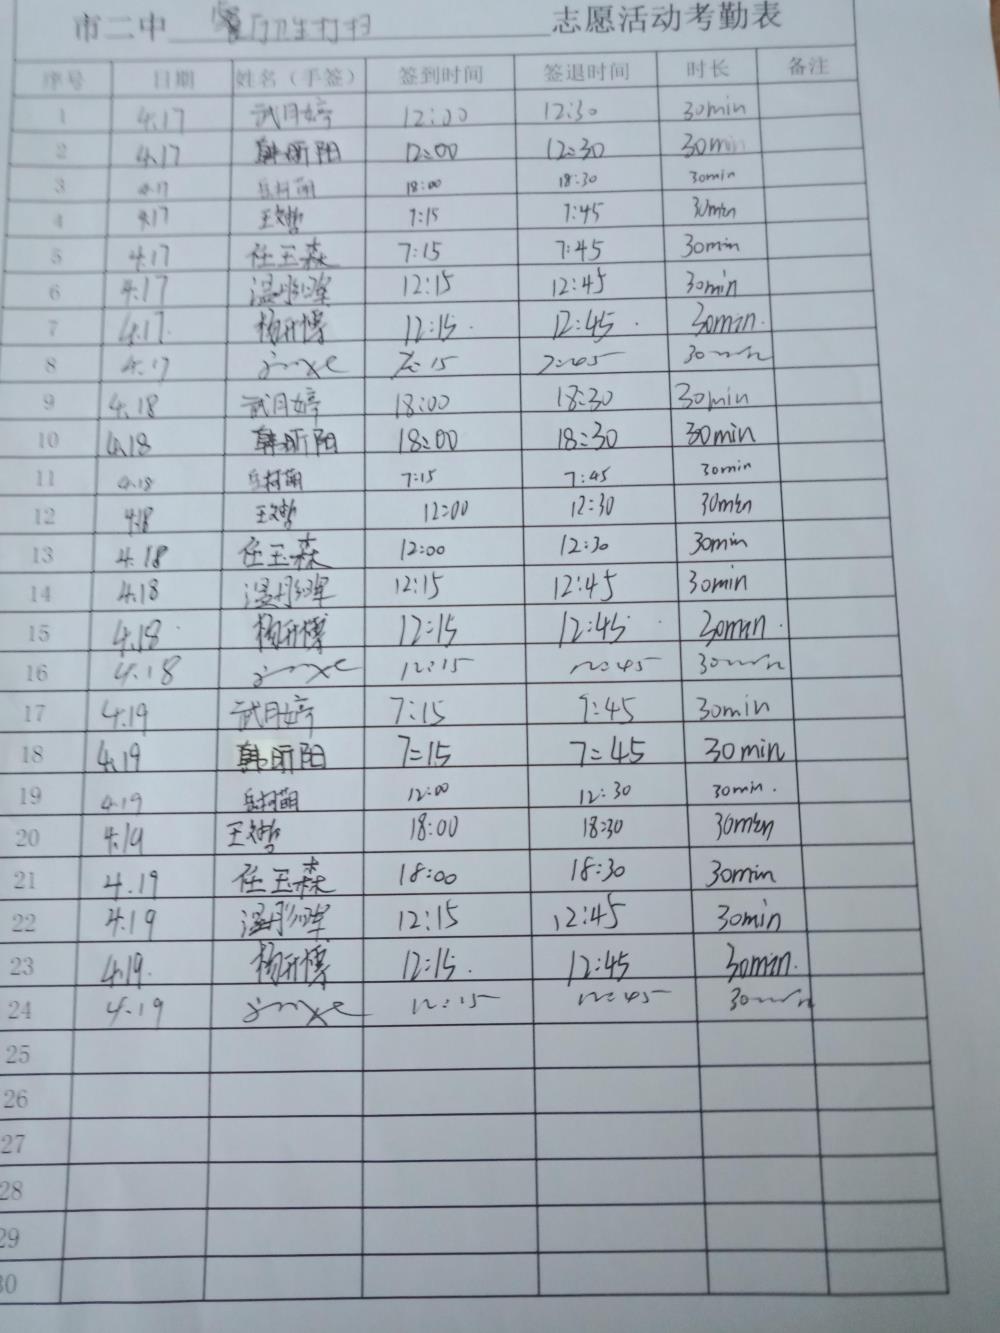 市二中 餐厅卫生打扫 志愿活动考勤表
序号 日期 姓名（手签） 签到时间 签退时间 时长 备注
1 4.17 武月婷 12:00 12:30 30min
2 4.17 韩昕阳 12:00 12:30 30min
3 4.17 岳柯萌 18:00 18:30 30min
4 4.17 王文哲 7:15 7:45 30min
5 4.17 任玉森 7:15 7:45 30min
6 4.17 温彤晖 12:15 12:45 30min
7 4.17. 杨开博 12:15. 12:45. 30min.
8 4.17 7:15 7:45 30min
9 4.18 武月婷 18:00 18:30 30min
10 4.18 韩昕阳 18:00 18:30 30min
11 4.18 岳柯萌 7:15 7:45 30min
12 4.18 王文哲 12:00 12:30 30min
13 4.18 任玉森 12:00 12:30 30min
14 4.18 温彤晖 12:15 12:45 30min
15 4.18. 杨开博 12:15 12:45. 30min.
16 4.18 12:15 12:45 30min
17 4.19 武月婷 7:15 7:45 30min
18 4.19 韩昕阳 7:15 7:45 30min
19 4.19 岳柯萌 12:00 12:30 30min.
20 4.19 王文哲 18:00 18:30 30min
21 4.19 任玉森 18:00 18:30 30min
22 4.19 温彤晖 12:15 12:45 30min
23 4.19. 杨开博 12:15. 12:45 30min.
24 4.19 12:15 12:45 30min
25
26
27
28
29
30